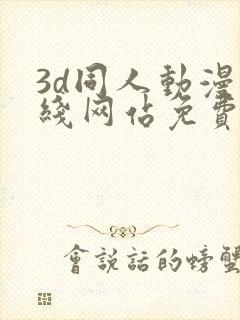 3d同人動漫
綫网佔免費
會説話的螃蟹